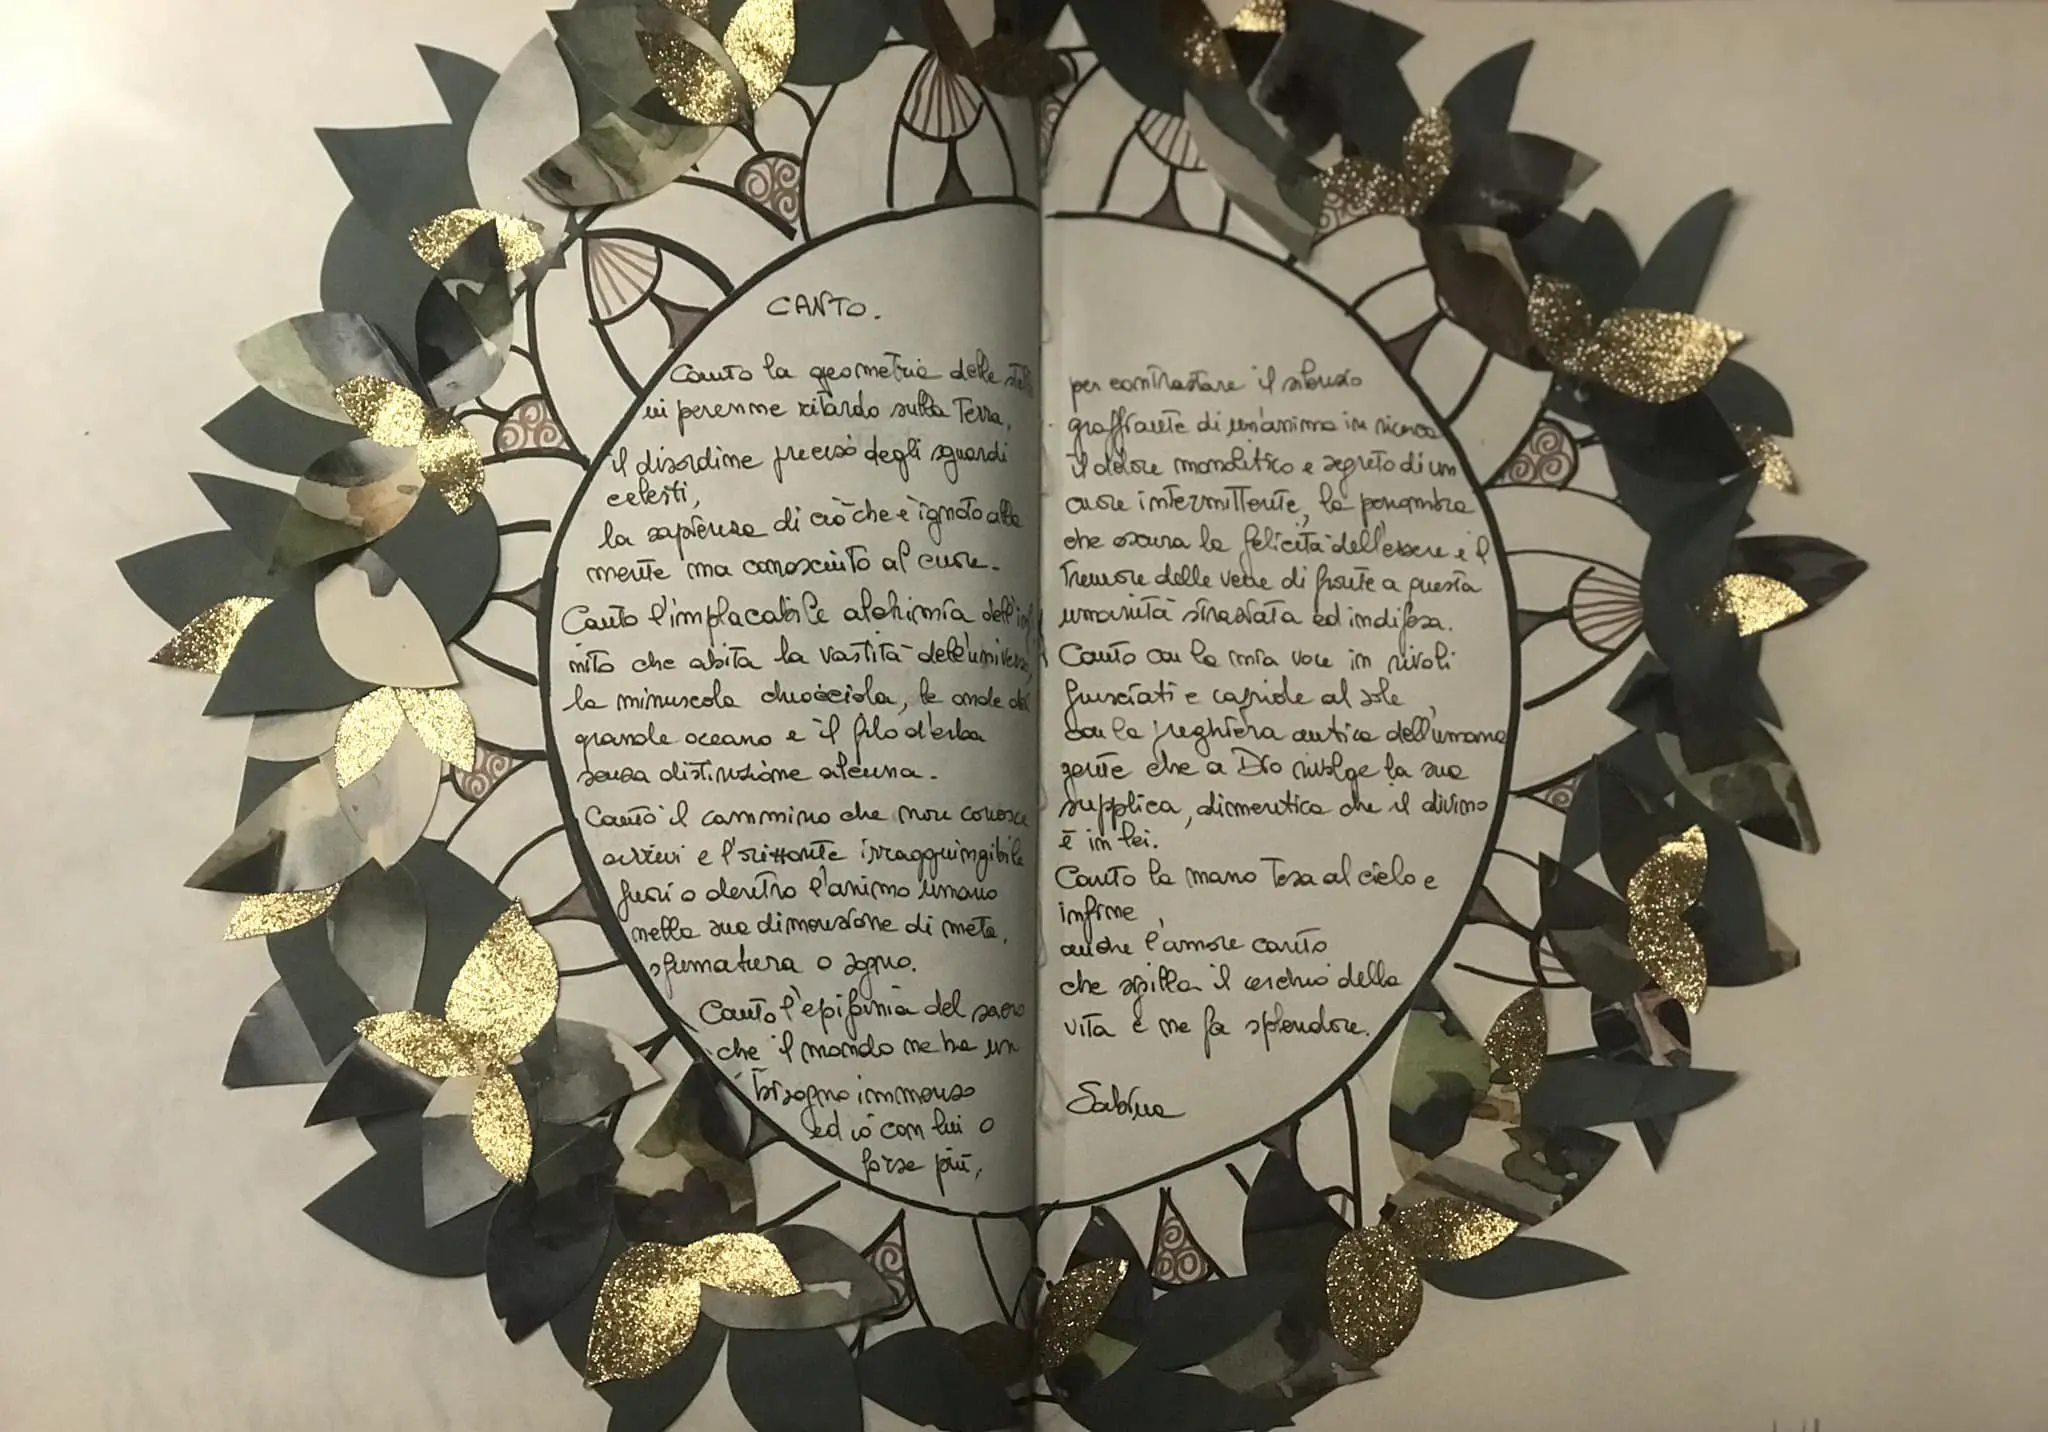 CANTO.
Canto la geometria delle
in perenne ritardo sulla Terra,
il disordine preciso degli sguardi
celesti,
la sapienza di ciò che è ignoto alla
mente ma conosciuto al cuore.
Canto l'implacabile alchimia dell'infi
nito che abita la vastità dell'universo,
la minuscola chiocciola, le onde del
grande oceano e il filo d'erba
senza distinzione alcuna.
Canto il cammino che non conosce
arrivi e l'orizzonte irraggiungibile
fuori o dentro l'animo umano
nella sua dimensione di meta,
sfumatura o sogno.
Canto l'epifania del sacro
che il mondo ne ha un
bisogno immenso
ed io con lui o
forse più,
per contrastare il silenzio
graffiante di un'anima in ricerca
il dolore monolitico e segreto di un
cuore intermittente, la penombra
che oscura la felicità dell'essere e il
tremore delle vene di fronte a questa
umanità straziata ed indifesa.
Canto con la mia voce in rivoli
frusciati e capriole al sole,
con la preghiera antica dell'umana
gente che a Dio rivolge la sua
supplica, dimentica che il divino
è in lei.
Canto la mano tesa al cielo e
infine,
anche l'amore canto
che sigilla il cerchio della
vita e ne fa splendore.
Sabrina